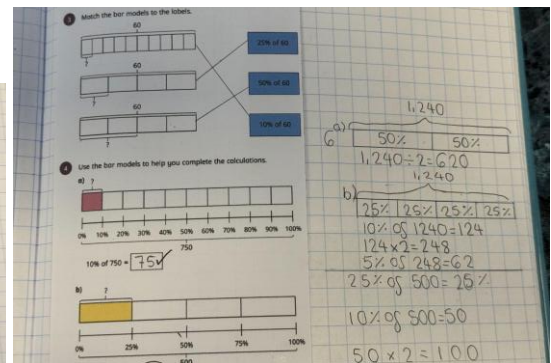 3 Match the bar models to the labels.
60
?
25% of 60
60
?
50% of 60
60
?
10% of 60
4 Use the bar models to help you complete the calculations.
a)
?
0% 10% 20% 30% 40% 50% 60% 70% 80% 90% 100%
750
10% of 750 = 75
b)
?
0% 25% 50% 75% 100%
500
1,240
6 a)
50% 50%
1,240÷2=620
1,240
b)
25% 25% 25% 25%
10% of 1240=124
124×2=248
5% of 248=62
25% of 500=25%
10% of 500=50
50×2=100